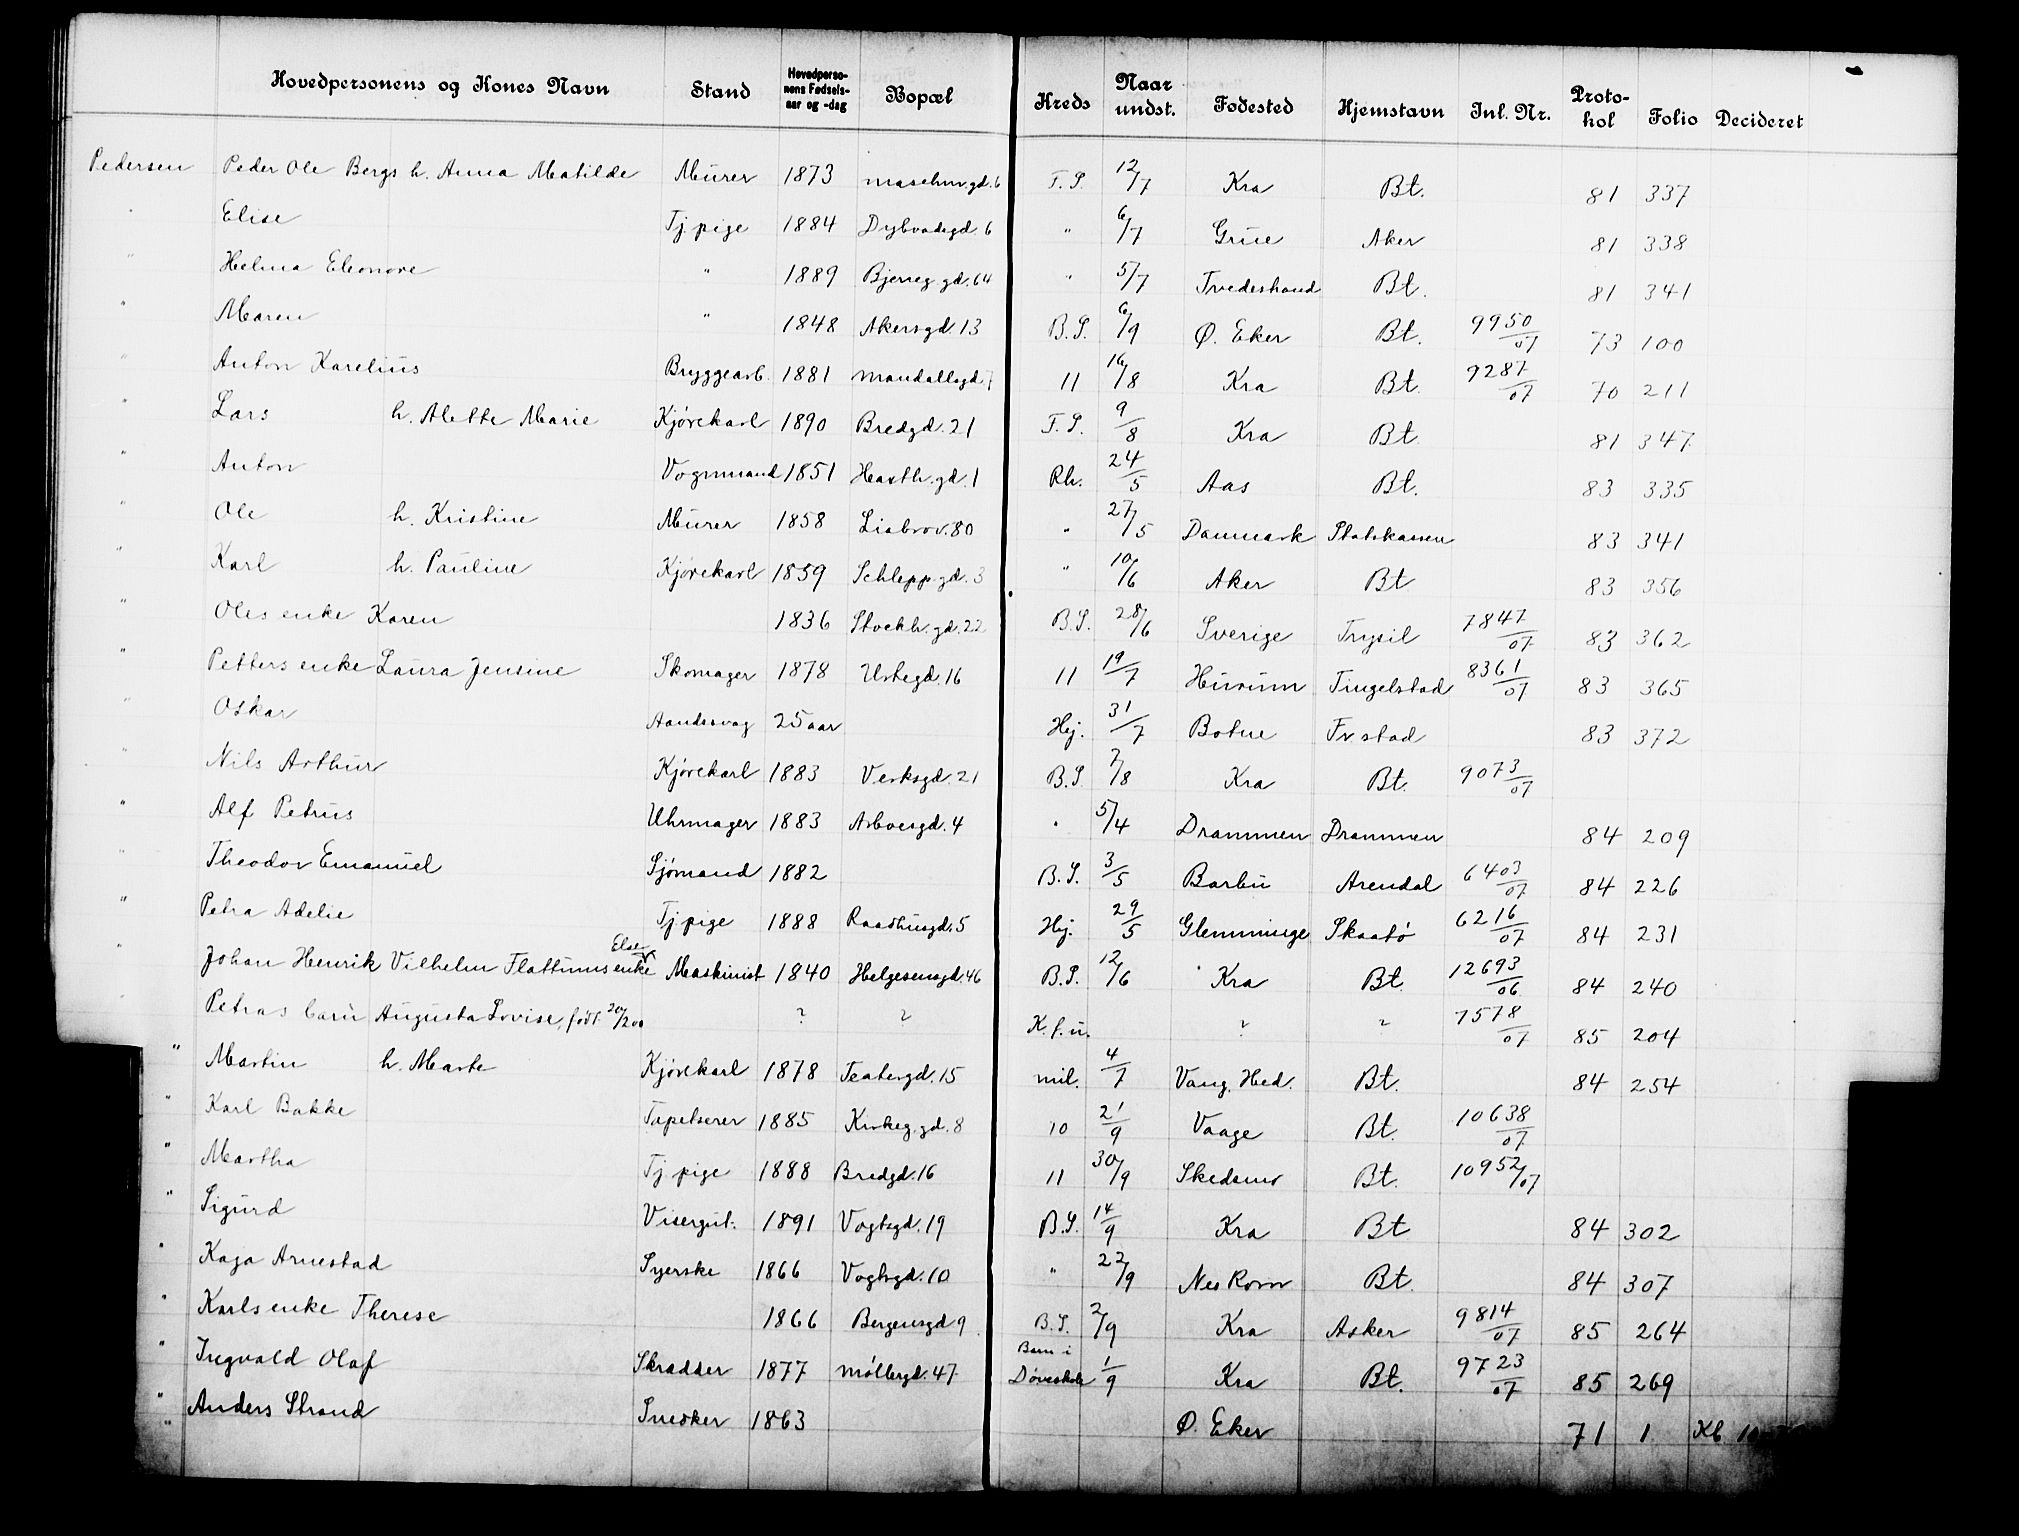 Hovedpersonens og Kones Navn Stand Hovedperso-nens Fødsels-aar og -dag Bopæl Kreds Naar undst. Fødested Hjemstavn Inl. Nr. Proto-kol Folio Decideret
Pedersen Peder Ole Bergs h. Anna Matilde Murer 1873 gd. 6 F.S. 12/7 Kra Bt. 81 337
" Elise Tj.pige 1884 Dybvadsgd. 6 " 6/7 Grue Aker 81 338
" Helma Eleonore " 1889 Bjerreg.gd. 64 " 5/7 Tvedestrand Bt. 81 341
" Maren " 1848 Akersgd. 13 B.S. 6/9 Ø. Eker Bt. 9950/07 73 100
" Anton Karelius Bryggearb. 1881 Mandallsgd. 7 11 16/8 Kra Bt. 9287/07 70 211
" Lars h. Alette Marie Kjørekarl 1890 Bredgd. 21 F.S. 9/8 Kra Bt. 81 347
" Anton Vognmand 1851 Hasth.gd. 1 Rh. 24/5 Aas Bt. 83 335
" Ole h. Kristine Murer 1858 Liabrov. 80 " 27/5 Danmark Statskassen 83 341
" Karl h. Pauline Kjørekarl 1859 Schlepp.gd. 3 " 10/6 Aker Bt 83 356
" Oles enke Karen 1836 Stockh.gd. 22 B.S. 28/6 Sverige Trysil 7847/07 83 362
" Petters enke Laura Jensine Skomager 1878 Urtegd. 16 11 19/7 Hurum Tingelstad 8361/07 83 365
" Oskar Aandssvag 25 aar Hj. 31/7 Botne Fr.stad 83 372
" Nils Arthur Kjørekarl 1883 Verksgd. 21 B.S. 7/8 Kra Bt. 9073/07
" Alf Petrus Uhrmager 1883 Arboesgd. 4 " 5/4 Drammen Drammen 84 209
" Theodor Emanuel Sjømand 1882 B.S. 3/5 Barbu Arendal 6403/07 84 226
" Petra Adelie Tj.pige 1888 Raadhusgd. 5 Hj. 29/5 Glemminge Skaatø 6216/07 84 231
" Johan Henrik Vilhelm Flattums enke Else Maskinist 1840 Helgesensgd. 46 B.S. 12/6 Kra Bt. 12693/06 84 240
Petras barn Augusta Lovise, født 20/2 00 ? ? K.f.u. ? ? 7578/07 85 204
" Martin h. Marte Kjørekarl 1878 Teatergd. 15 mil. 4/7 Vang. Hed. Bt. 84 254
" Karl Bakke Tapetserer 1885 Kirkeg.gd. 8 10 21/9 Vaage Bt. 10638/07
" Martha Tj.pige 1888 Bredgd. 16 11 30/9 Skedsmo Bt. 10952/07
" Sigurd Visergut. 1891 Vogtsgd. 19 B.S. 14/9 Kra Bt 84 302
" Kaja Arnestad Syerske 1866 Vogtsgd. 10 " 22/9 Nes Rom. Bt. 84 307
" Karls enke Therese 1866 Bergensgd 9 B.S. 2/9 Kra Asker 9814/07 85 264
" Ingvald Olaf Skrædder 1877 Møllergd. 47 Barn i Døveskole 1/9 Kra Bt. 9723/07 85 269
" Anders Strand Snedker 1863 Ø. Eker 71 1 Kb.
"